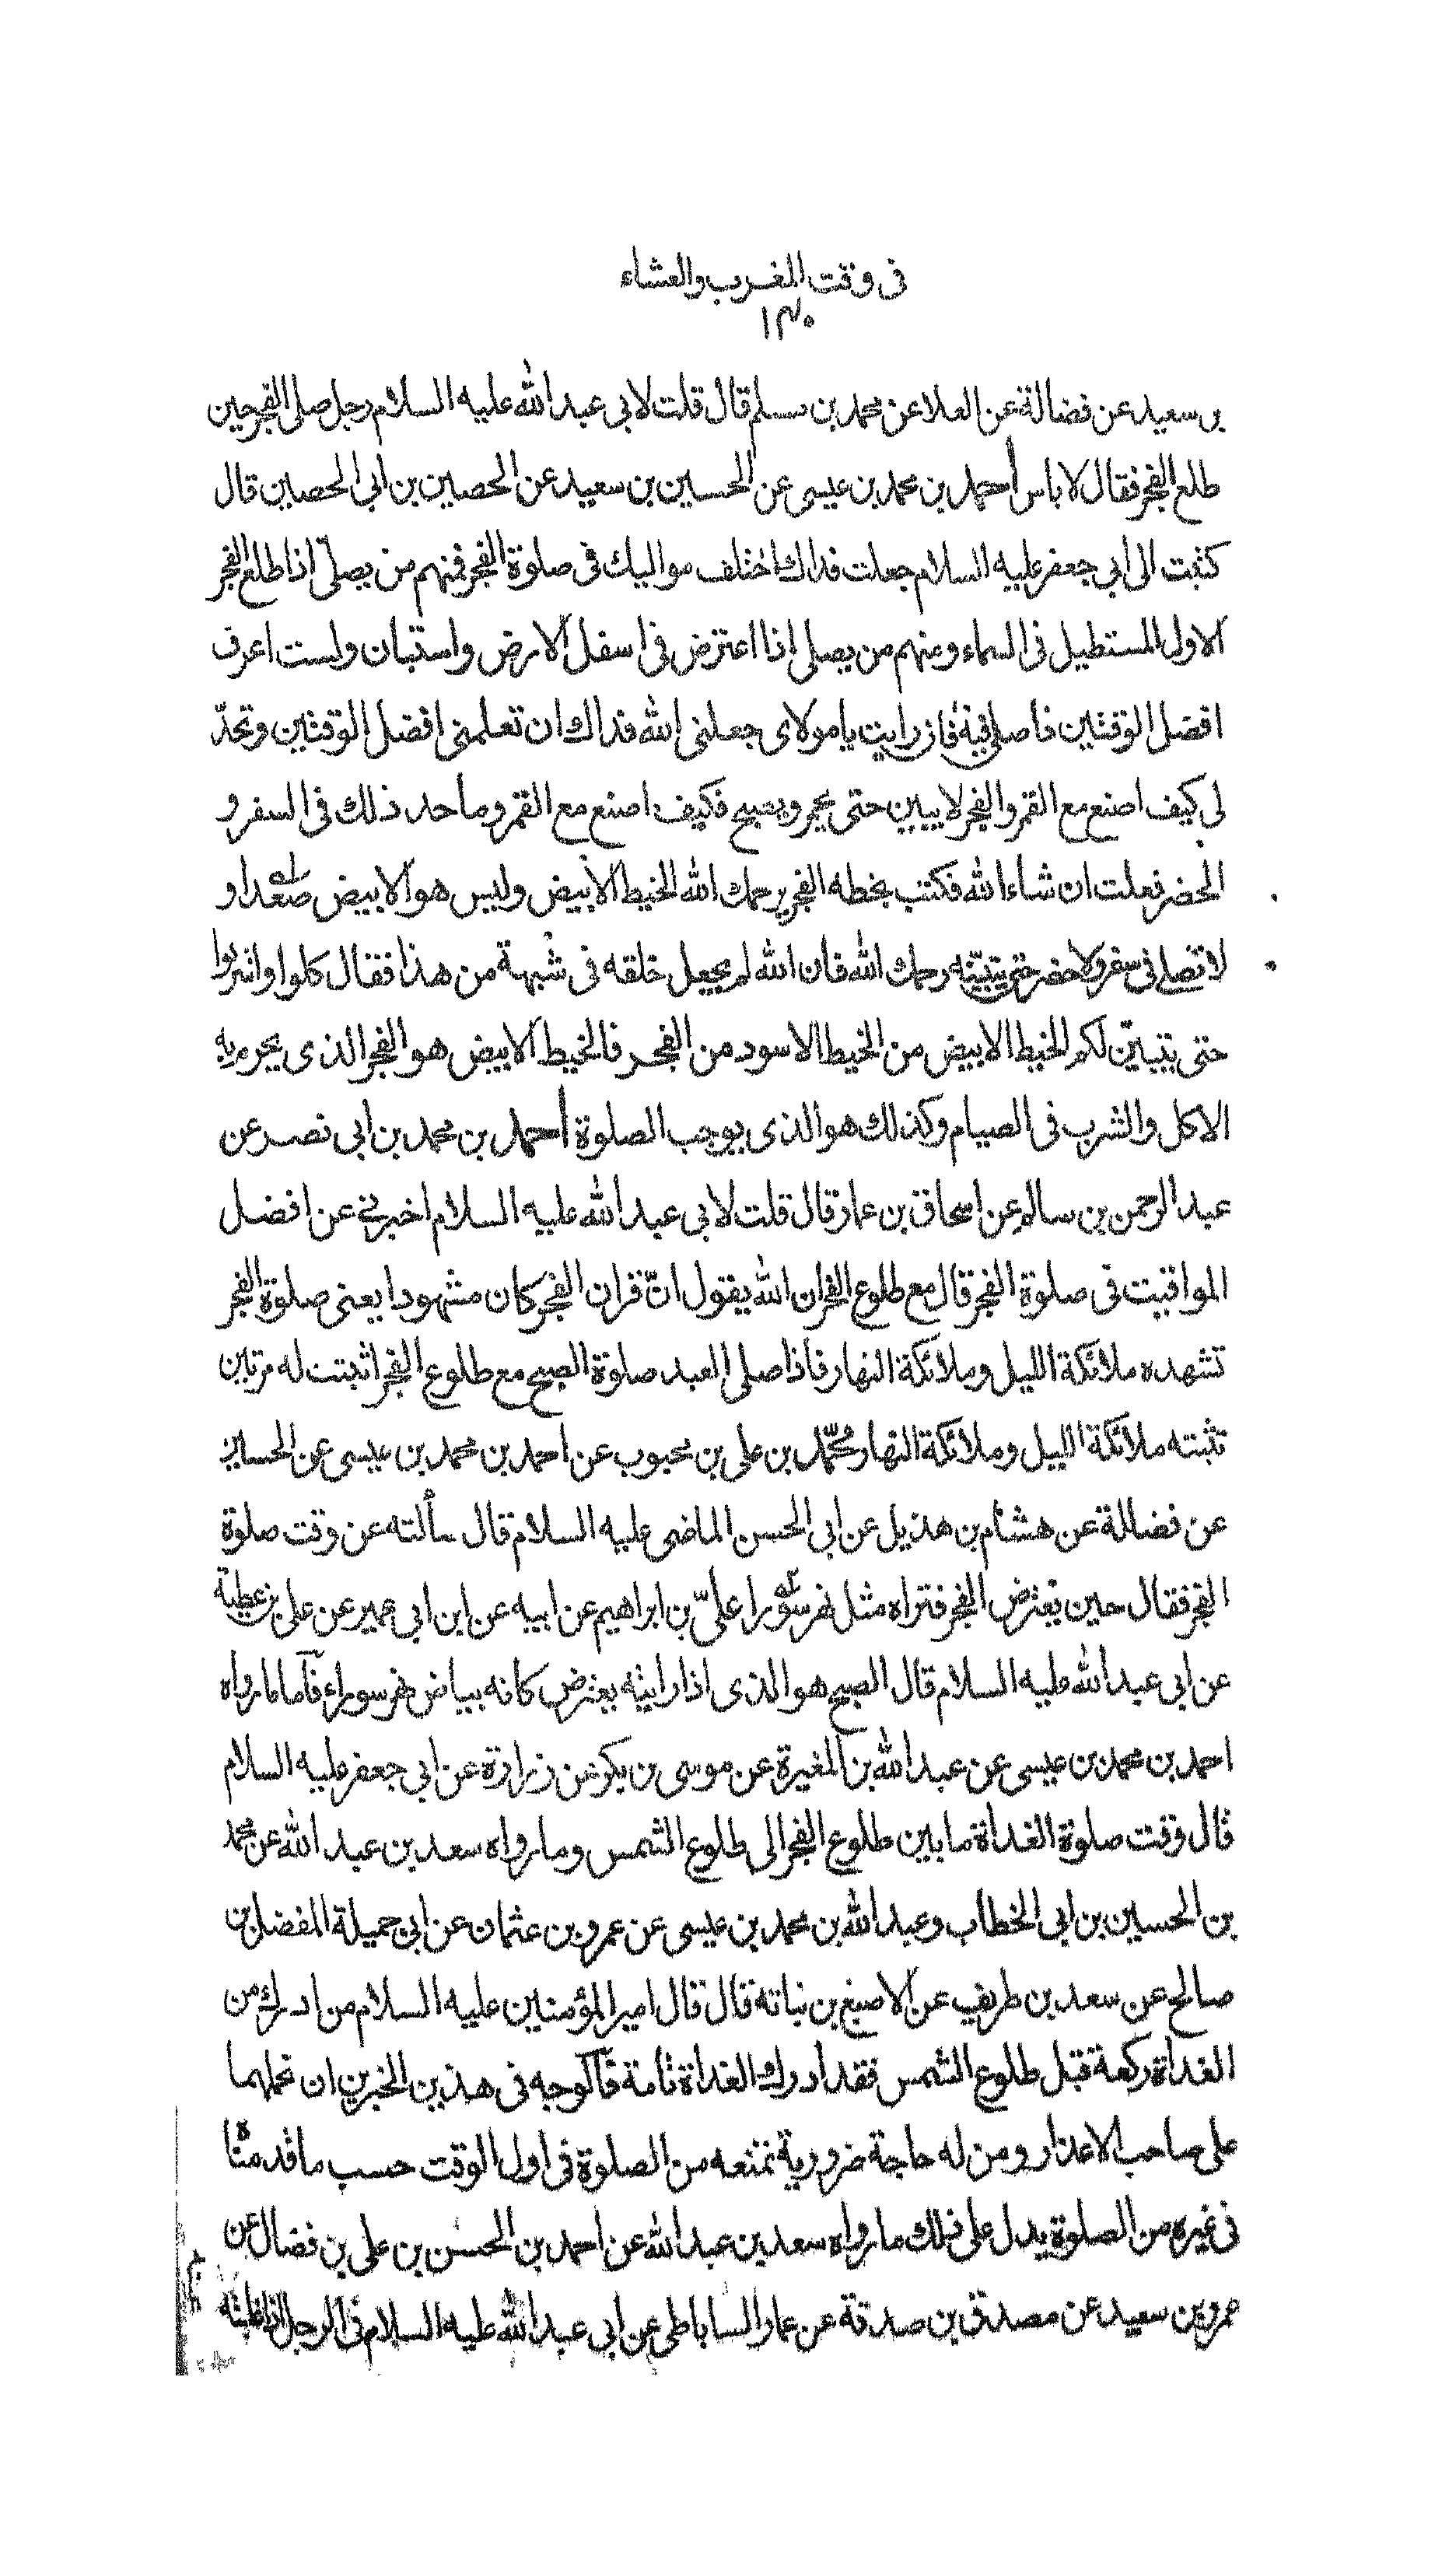 فى وقت المغرب والعشاء
١٣٠
بن سعيد عن فضالة عن العلا عن محمد بن مسلم قال قلت لابى عبد الله عليه السلام رجل صلى الفجر حين
طلع الفجر فقال لا باس احمد بن محمد بن عيسى عن الحسين بن سعيد عن الحصين بن ابى الحصين قال
كتبت الى ابى جعفر عليه السلام جعلت فداك اختلف مواليك فى صلوة الفجر فمنهم من يصلى اذا طلع الفجر
الاول المستطيل فى السماء ومنهم من يصلى اذا اعترض فى اسفل الارض واستبان ولست اعرف
افضل الوقتين فاصلى فيه فان رايت يا مولاى جعلنى الله فداك ان تعلمنى افضل الوقتين وتحدّ
لى كيف اصنع مع القمر والفجر لا يبين حتى يحمر ويصبح فكيف اصنع مع القمر وما حد ذلك فى السفر و
الحضر فعلت ان شاء الله فكتب بخطه الفجر يرحمك الله الخيط الابيض وليس هو الابيض صعدا و
لا تصلى فى سفر ولا حضر حتى تتبيّنه رحمك الله فان الله لم يجعل خلقه فى شبهة من هذا فقال كلوا واشربوا
حتى يتبيّن لكم الخيط الابيض من الخيط الاسود من الفجر فالخيط الابيض هو الفجر الذى يحرم به
الاكل والشرب فى الصيام وكذلك هو الذى يوجب الصلوة احمد بن محمد بن ابى نصر عن
عبد الرحمن بن سالم عن اسحاق بن عمار قال قلت لابى عبد الله عليه السلام اخبرنى عن افضل
المواقيت فى صلوة الفجر قال مع طلوع الفجر ان الله يقول انّ قران الفجر كان مشهودا يعنى صلوة الفجر
تشهده ملائكة الليل وملائكة النهار فاذا صلى العبد صلوة الصبح مع طلوع الفجر اثبتت له مرتين
تثبته ملائكة الليل وملائكة النهار محمّد بن على بن محبوب عن احمد بن محمد بن عيسى عن الحسين
عن فضالة عن هشام بن هذيل عن ابى الحسن الماضى عليه السلام قال سألته عن وقت صلوة
الفجر فقال حين يعترض الفجر فتراه مثل نهر سورا علىّ بن ابراهيم عن ابيه عن ابن ابى عمير عن على بن عطية
عن ابى عبد الله عليه السلام قال الصبح هو الذى اذا رايته يعترض كانه بياض نهر سوراء فآما ما رواه
احمد بن محمد بن عيسى عن عبد الله بن المغيرة عن موسى بن بكر عن زرارة عن ابى جعفر عليه السلام
قال وقت صلوة الغداة ما بين طلوع الفجر الى طلوع الشمس وما رواه سعد بن عبد الله عن محمد
بن الحسين بن ابى الخطاب وعبد الله بن محمد بن عيسى عن عمرو بن عثمان عن ابى جميلة المفضل بن
صالح عن سعد بن طريف عن الاصبغ بن نباته قال قال امير المؤمنين عليه السلام من ادرك من
الغداة ركعة قبل طلوع الشمس فقد ادرك الغداة تامة فآلوجه فى هذين الخبرين ان نحملهما
على صاحب الاعذار ومن له حاجة ضرورية تمنعه من الصلوة فى اول الوقت حسب ما قدمناه
فى غيره من الصلوة يدل على ذلك ما رواه سعد بن عبد الله عن احمد بن الحسن بن على بن فضال عن
عمرو بن سعيد عن مصدق بن صدقة عن عمار الساباطى عن ابى عبد الله عليه السلام فى الرجل اذا غلبته